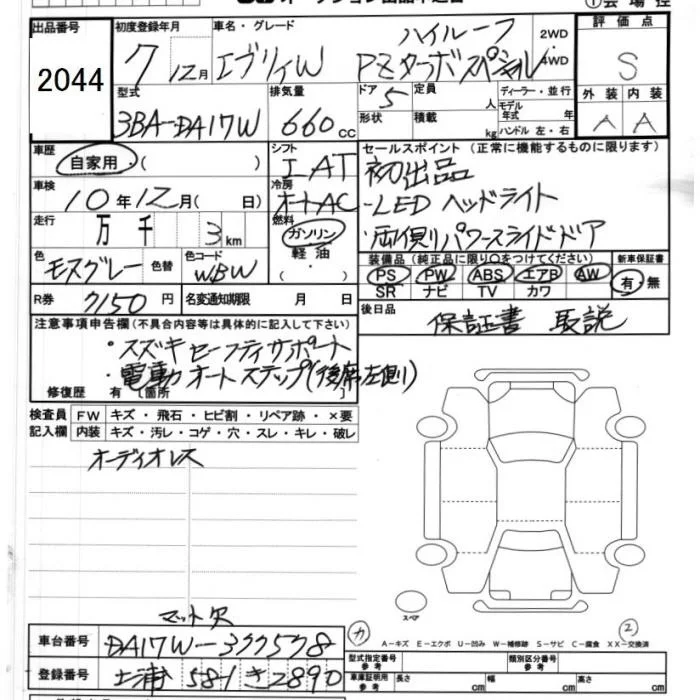 出品番号 初度登録年月 車名・グレード ハイルーフ 2WD 評価点
2044 7 12月 エブリィW PZターボスペシャル 4WD S
型式 排気量 ドア 定員 ディーラー・並行 外装 内装
3BA-DA17W 660cc 5 人 モデル年式 年 A A
形状 積載 kg ハンドル 左・右
車歴 シフト セールスポイント (正常に機能するものに限ります)
自家用・( ) IAT 初出品
車検 冷房
10年12月( 日) オートAC ・LEDヘッドライト
走行 燃料
万 千 3km ガソリン ・両側パワースライドドア
色 色替 色コード 軽油・ 装備品(純正品に限り○をつけてください) 新車保証書
モスグレー WBW ( ) PS PW ABS エアB AW 有・無
SR ナビ TV カワ
R券 7150円 名変通知期限 月 日 後日品
注意事項申告欄(不具合内容等は具体的に記入して下さい) 保証書 取説
・スズキセーフティサポート
・電動オートステップ(後席左側)
修復歴 有 〔箇所 〕
検査員 FW キズ・飛石・ヒビ割・リペア跡・×要
記入欄 内装 キズ・汚レ・コゲ・穴・スレ・キレ・破レ
オーディオレス
スペア
マット欠
車台番号 DA17W-377578 カ A-キズ E-エクボ U-凹み W-補修跡 S-サビ C-腐食 XX-交換済 2
登録番号 土浦 581 き 2890 型式指定番号 参考 類別区分番号 参考
車庫証明用 参考 長さ cm 幅 cm 高さ cm